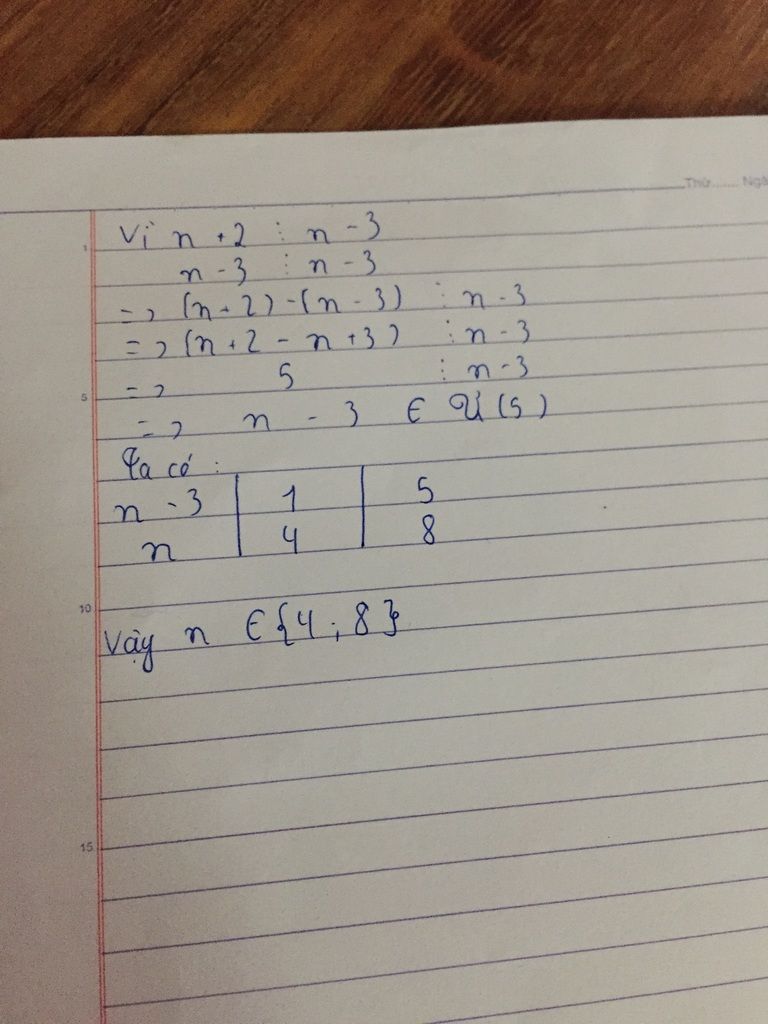 Thứ....... Ngà
Vì n + 2 ⋮ n - 3
n - 3 ⋮ n - 3
=> (n + 2) - (n - 3) ⋮ n - 3
=> (n + 2 - n + 3) ⋮ n - 3
=> 5 ⋮ n - 3
=> n - 3 ∈ Ư (5)
Ta có :
n - 3 | 1 | 5
n | 4 | 8
Vậy n ∈ {4 ; 8}
1
5
10
15